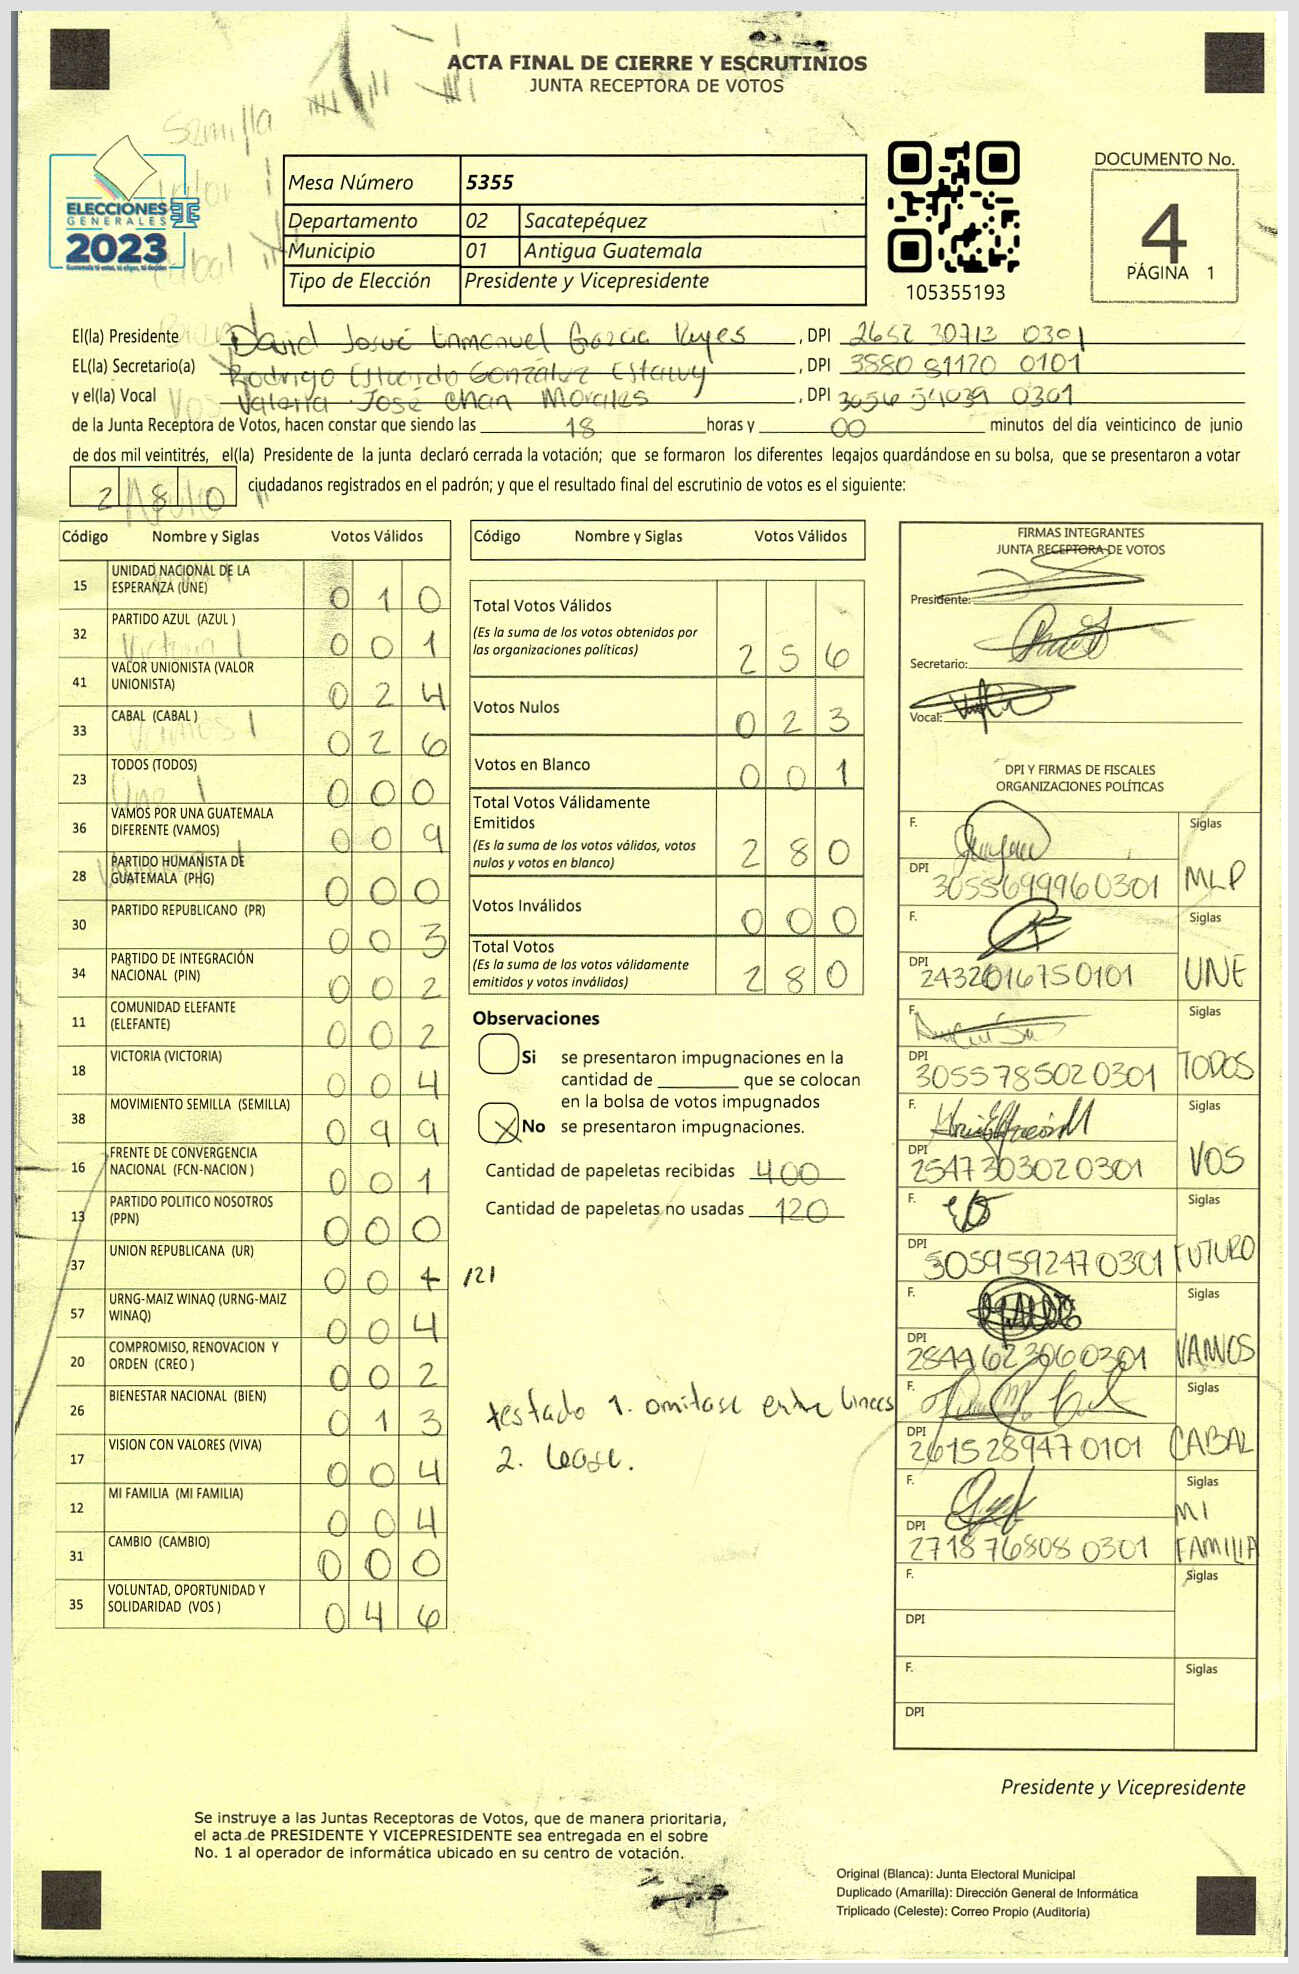 ACTA FINAL DE CIERRE Y ESCRUTINIOS
JUNTA RECEPTORA DE VOTOS
Semilla
ELECCIONES
GENERALES
2023
Mesa Número 5355
Departamento 02 Sacatepéquez
Municipio 01 Antigua Guatemala
Tipo de Elección Presidente y Vicepresidente
105355193
DOCUMENTO No.
4
PÁGINA 1
El(la) Presidente David Josué Enmanuel García Reyes, DPI 2652 30713 0301
EL(la) Secretario(a) Rodrigo Estuardo González, DPI 3580 81120 0101
y el(la) Vocal Valeria José Chan Morales, DPI 3056 54039 0301
de la Junta Receptora de Votos, hacen constar que siendo las 18 horas y 00 minutos del día veinticinco de junio
de dos mil veintitrés, el(la) Presidente de la junta declaró cerrada la votación; que se formaron los diferentes legajos quardándose en su bolsa, que se presentaron a votar
280 ciudadanos registrados en el padrón; y que el resultado final del escrutinio de votos es el siguiente:
Código Nombre y Siglas Votos Válidos
15 UNIDAD NACIONAL DE LA ESPERANZA (UNE) 010
32 PARTIDO AZUL (AZUL ) 001
41 VALOR UNIONISTA (VALOR UNIONISTA) 024
33 CABAL (CABAL ) 026
23 TODOS (TODOS) 000
36 VAMOS POR UNA GUATEMALA DIFERENTE (VAMOS) 009
28 PARTIDO HUMANISTA DE GUATEMALA (PHG) 000
30 PARTIDO REPUBLICANO (PR) 003
34 PARTIDO DE INTEGRACIÓN NACIONAL (PIN) 002
11 COMUNIDAD ELEFANTE (ELEFANTE) 002
18 VICTORIA (VICTORIA) 004
38 MOVIMIENTO SEMILLA (SEMILLA) 099
16 FRENTE DE CONVERGENCIA NACIONAL (FCN-NACION ) 001
13 PARTIDO POLITICO NOSOTROS (PPN) 000
37 UNION REPUBLICANA (UR) 004 /2/
57 URNG-MAIZ WINAQ (URNG-MAIZ WINAQ) 004
20 COMPROMISO, RENOVACION Y ORDEN (CREO ) 002
26 BIENESTAR NACIONAL (BIEN) 013
17 VISION CON VALORES (VIVA) 004
12 MI FAMILIA (MI FAMILIA) 004
31 CAMBIO (CAMBIO) 000
35 VOLUNTAD, OPORTUNIDAD Y SOLIDARIDAD (VOS ) 046
Código Nombre y Siglas Votos Válidos
Total Votos Válidos 256
(Es la suma de los votos obtenidos por
las organizaciones políticas)
Votos Nulos 023
Votos en Blanco 001
Total Votos Válidamente
Emitidos 280
(Es la suma de los votos válidos, votos
nulos y votos en blanco)
Votos Inválidos 000
Total Votos 280
(Es la suma de los votos válidamente
emitidos y votos inválidos)
Observaciones
Si se presentaron impugnaciones en la
cantidad de ________ que se colocan
en la bolsa de votos impugnados
X No se presentaron impugnaciones.
Cantidad de papeletas recibidas 400
Cantidad de papeletas no usadas 120
testado 1. omitase entre lineas
2. lease.
FIRMAS INTEGRANTES
JUNTA RECEPTORA DE VOTOS
Presidente:
Secretario:
Vocal:
DPI Y FIRMAS DE FISCALES
ORGANIZACIONES POLÍTICAS
F. Siglas
DPI 3055699960301 MLP
F. Siglas
DPI 2432016750101 UNE
F. Siglas
DPI 3055785020301 TODOS
F. Siglas
DPI 2547303020301 VOS
F. Siglas
DPI 3059592470301 FUTURO
F. Siglas
DPI 2844623060301 VAMOS
F. Siglas
DPI 2615289470101 CABAL
F. Siglas
DPI 2718768080301 MI FAMILIA
F. Siglas
DPI
F. Siglas
DPI
Presidente y Vicepresidente
Se instruye a las Juntas Receptoras de Votos, que de manera prioritaria,
el acta de PRESIDENTE Y VICEPRESIDENTE sea entregada en el sobre
No. 1 al operador de informática ubicado en su centro de votación.
Original (Blanca): Junta Electoral Municipal
Duplicado (Amarilla): Dirección General de Informática
Triplicado (Celeste): Correo Propio (Auditoría)